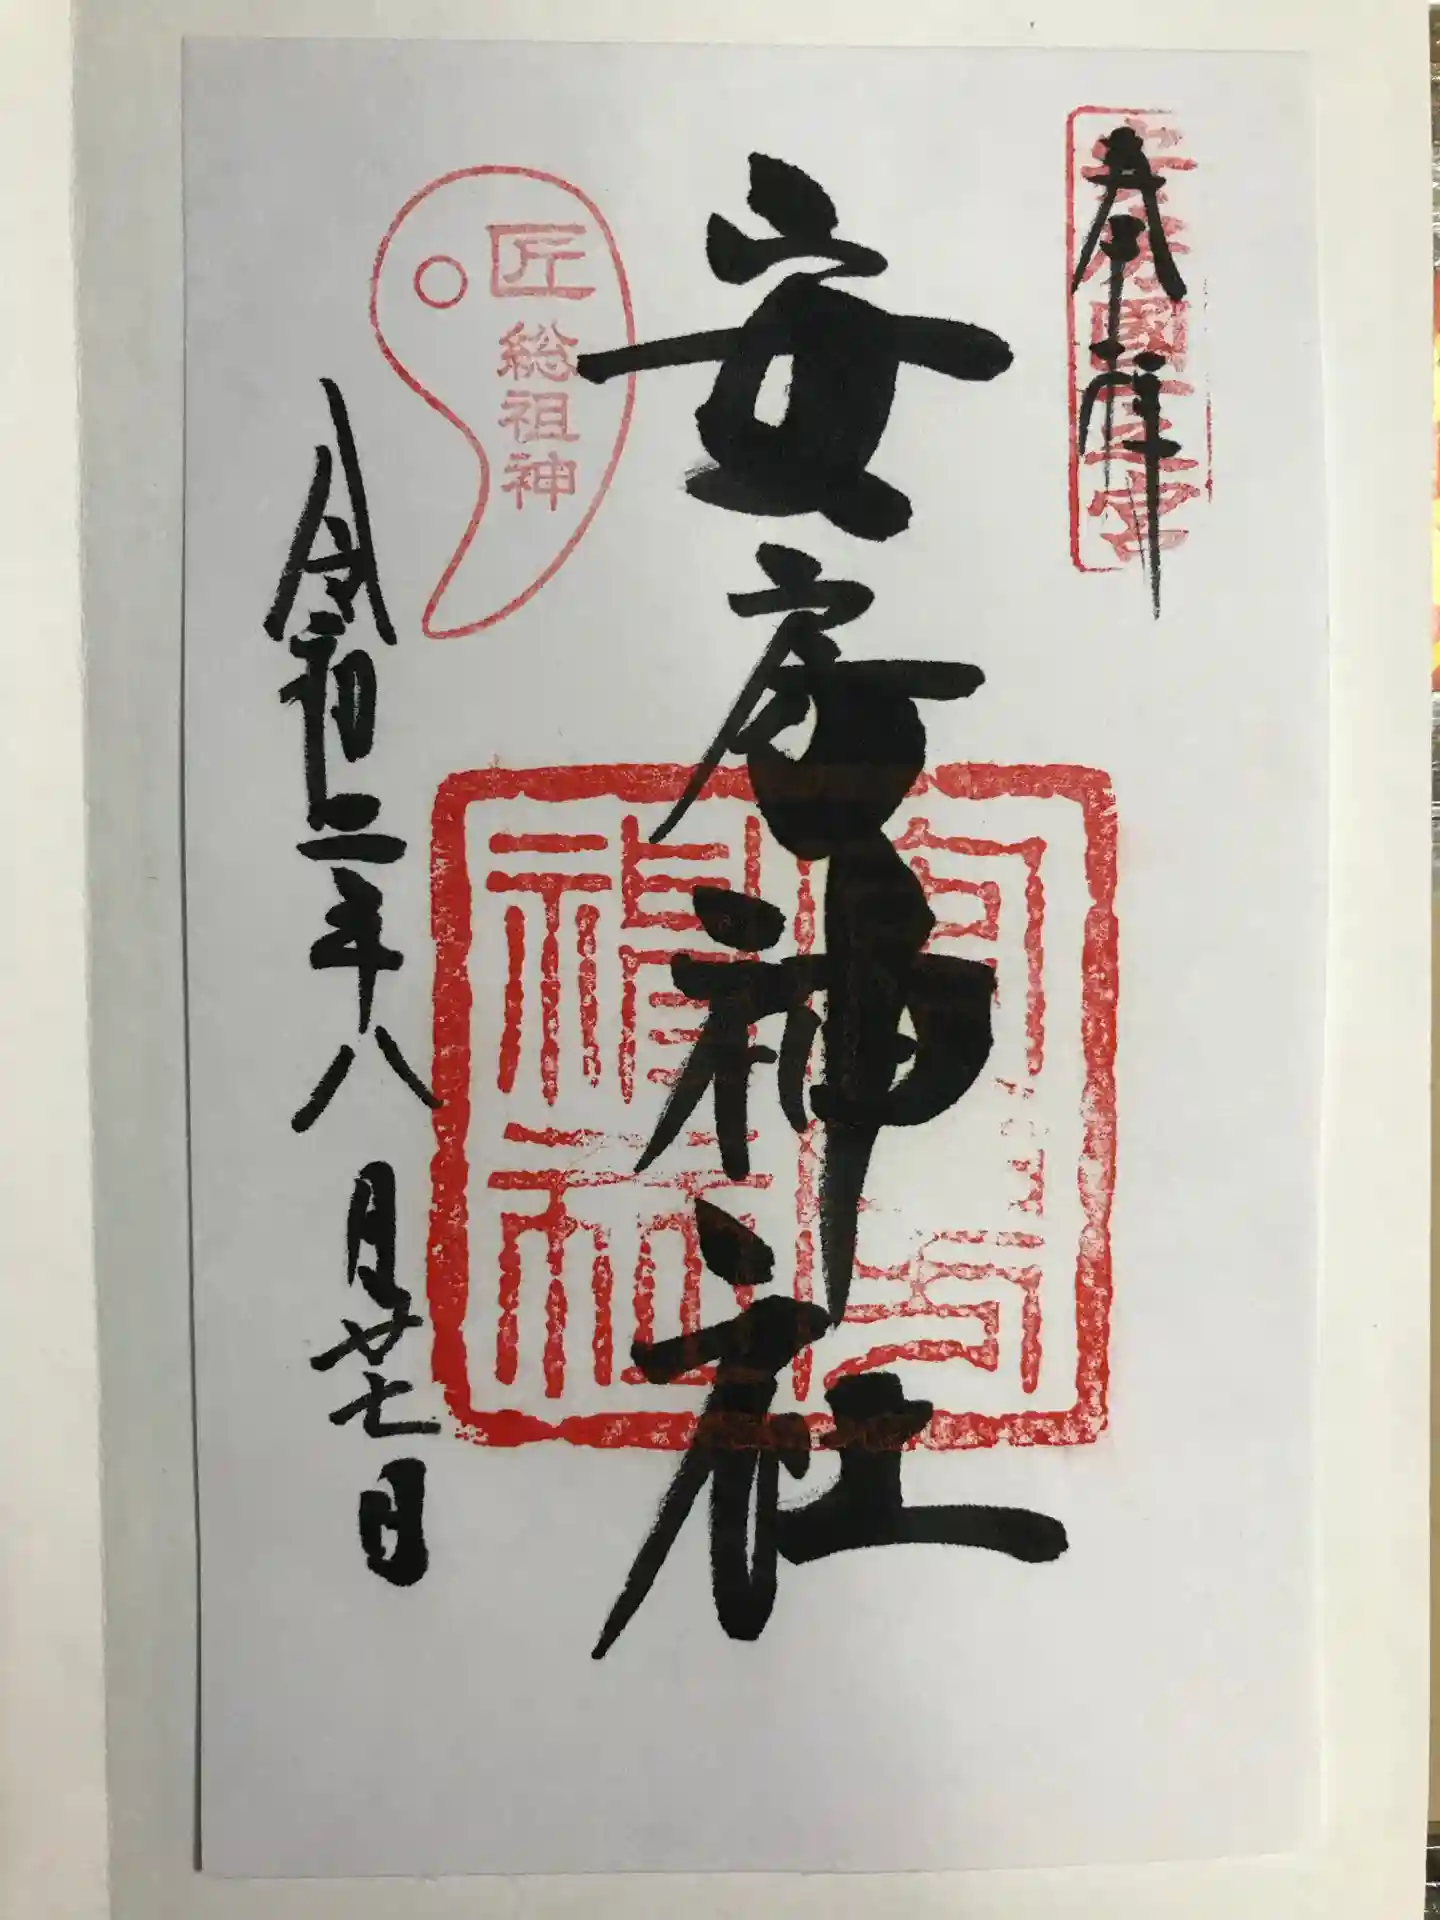 奉拝
安房國一之宮
安房神社
匠
総祖神
令和二年八月廿七日